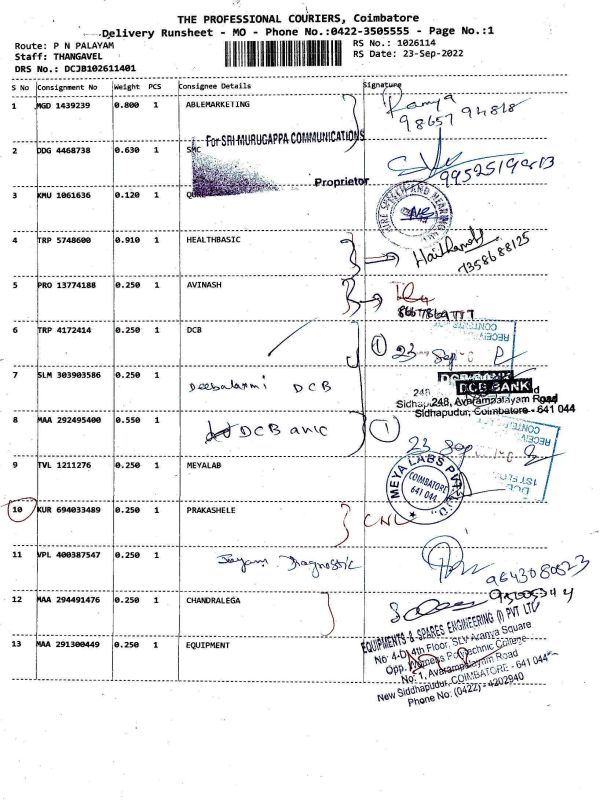 THE PROFESSIONAL COURIERS, Coimbatore
Delivery Runsheet - MO - Phone No.:0422-3505555 - Page No.:1
Route: P N PALAYAM
RS No.: 1026114
Staff: THANGAVEL
RS Date: 23-Sep-2022
DRS No.: DCJB102611401
S No Consignment No Weight PCS Consignee Details Signature
1 MGD 1439239 0.800 1 ABLEMARKETING
98657 94818
For SRI MURUGAPPA COMMUNICATIONS
2 DDG 4468738 0.630 1 SMC
Proprietor
3 KMU 1061636 0.120 1
4 TRP 5748600 0.910 1 HEALTHBASIC
7358688125
5 PRO 13774188 0.250 1 AVINASH
6 TRP 4172414 0.250 1 DCB
1 23 Sep
7 SLM 303903586 0.250 1 Deebalaxmi DCB
DCB BANK
248, Avarampalayam Road
Sidhapudur, Coimbatore - 641 044
8 MAA 292495400 0.550 1 DCB
1
23 Sep
9 TVL 1211276 0.250 1 MEYALAB
MEYA LABS PVT
COIMBATORE
641 044
10 KUR 694033489 0.250 1 PRAKASHELE
CNL
11 VPL 400387547 0.250 1 Jayam Diagnostic
9643080523
12 MAA 294491476 0.250 1 CHANDRALEGA
13 MAA 291300449 0.250 1 EQUIPMENT
EQUIPMENTS & SPARES ENGINEERING (I) PVT LTD
No: 4-D, 4th Floor, SLV Aranya Square
Opp. Polytechnic College
No: 1, Avarampalayam Road
New Siddhapudur, COIMBATORE - 641 044
Phone No: (0422) - 4202940